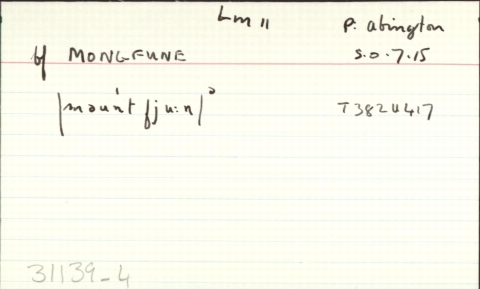 Lm 11
P. abington
bf MONGFUNE
S.O.7.15
|maunt fju:n|°
T382U417
31139_4